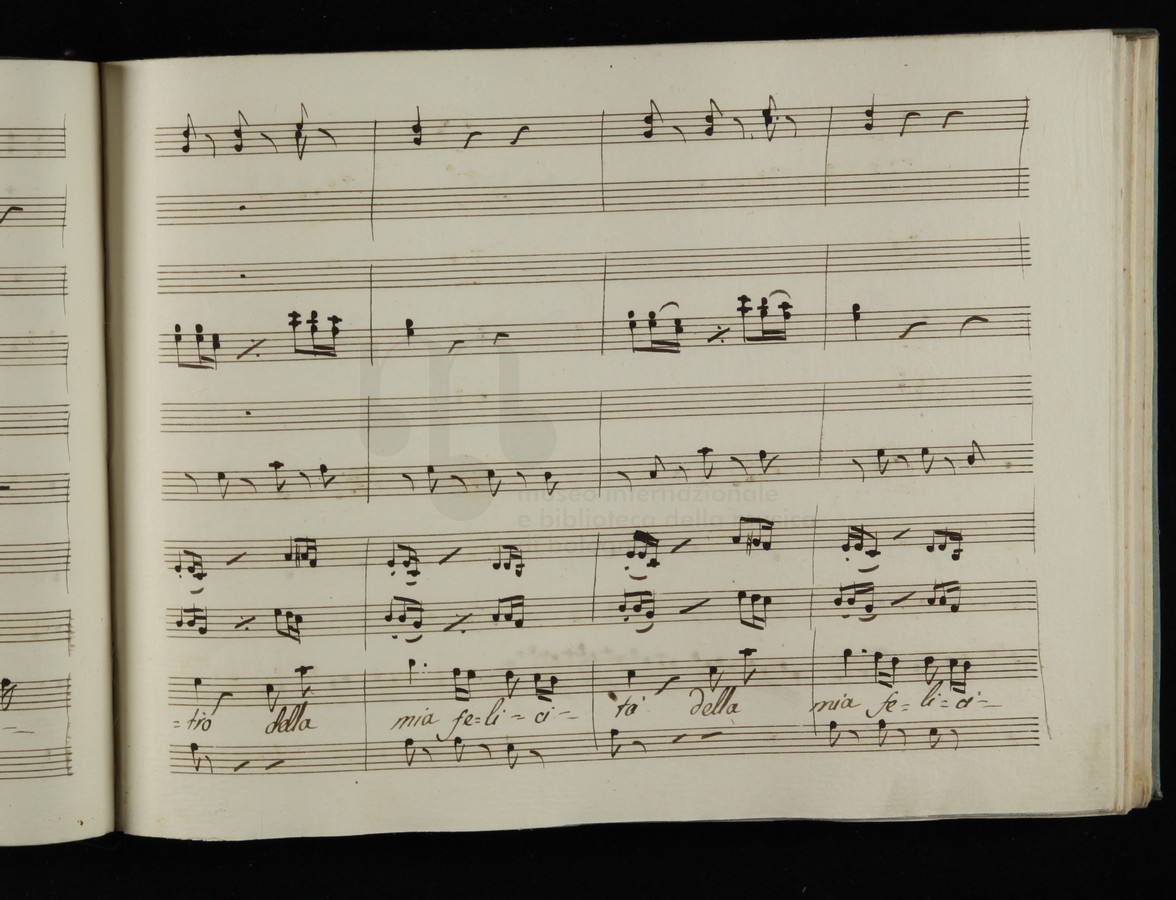 museo internazionale
e biblioteca della musica
di bologna
=trò della mia fe=li=ci= tà della mia fe=li=ci=